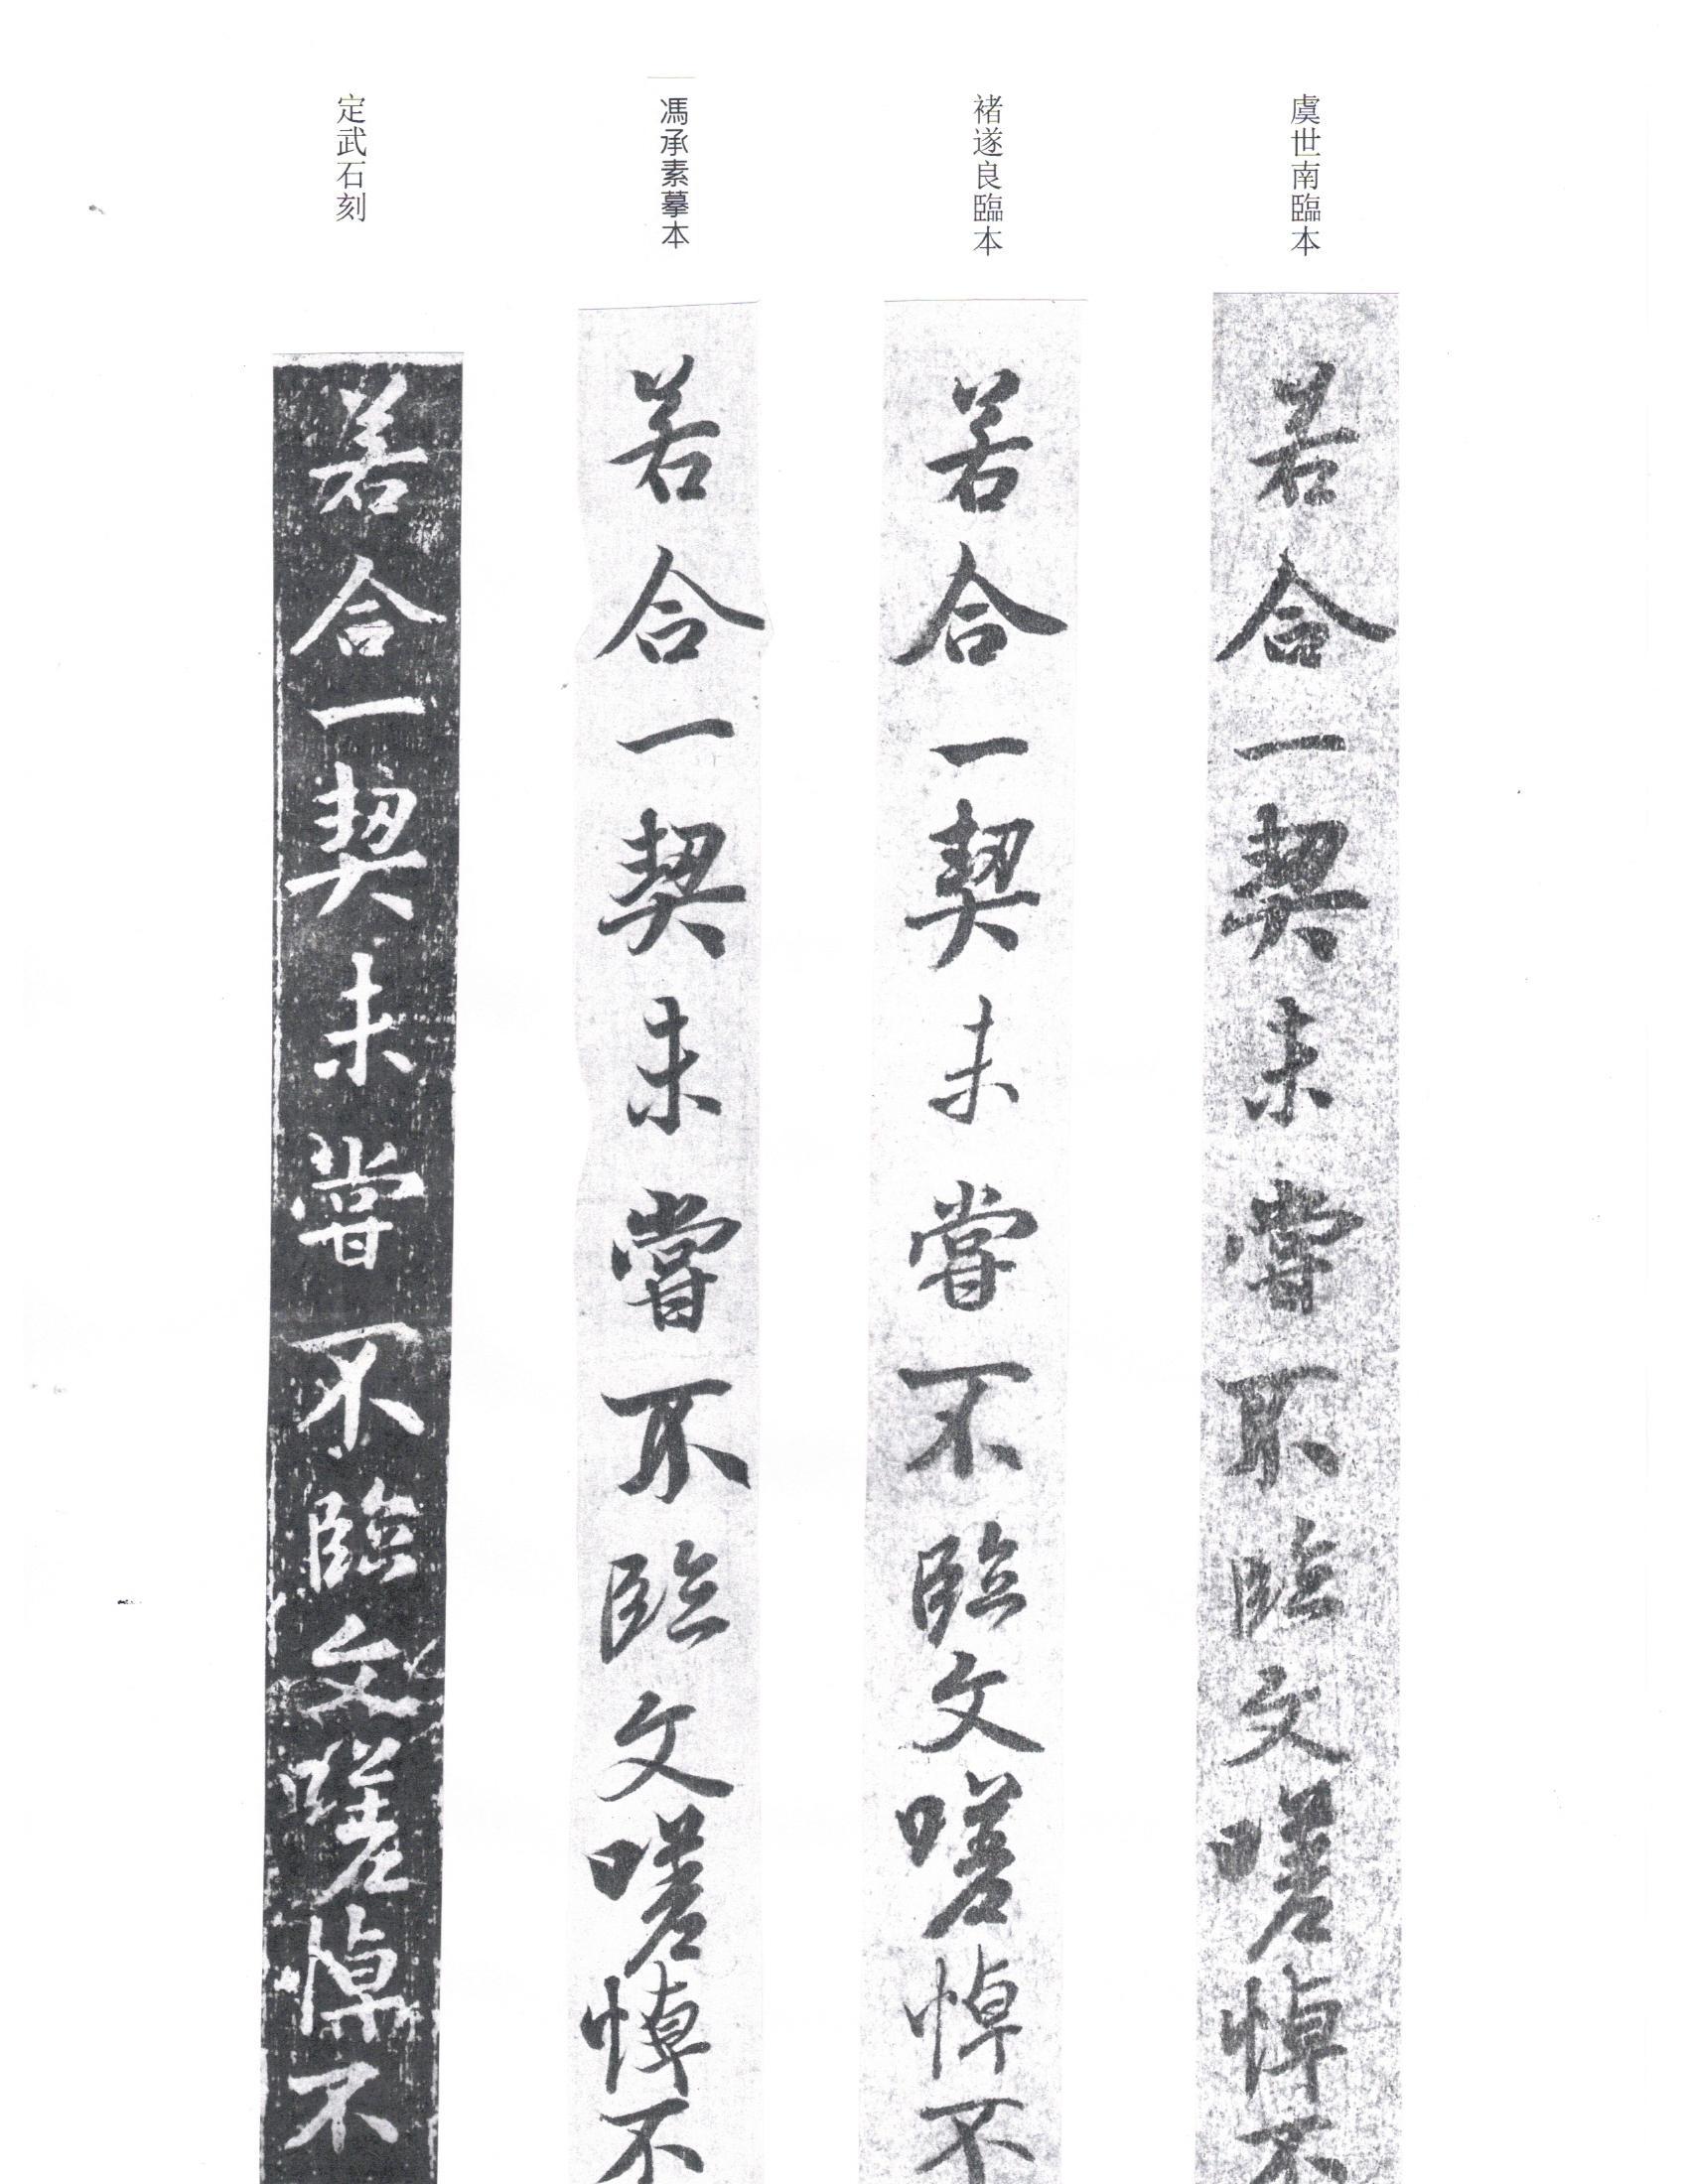 虞世南臨本
若合一契未嘗不臨文嗟悼不
褚遂良臨本
若合一契未嘗不臨文嗟悼不
馮承素摹本
若合一契未嘗不臨文嗟悼不
定武石刻
若合一契未嘗不臨文嗟悼不